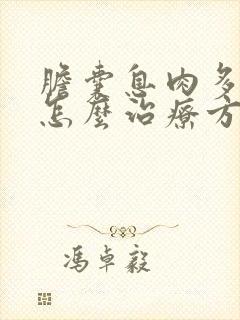 膽囊息肉多
怎麼治療方
馮卓毅